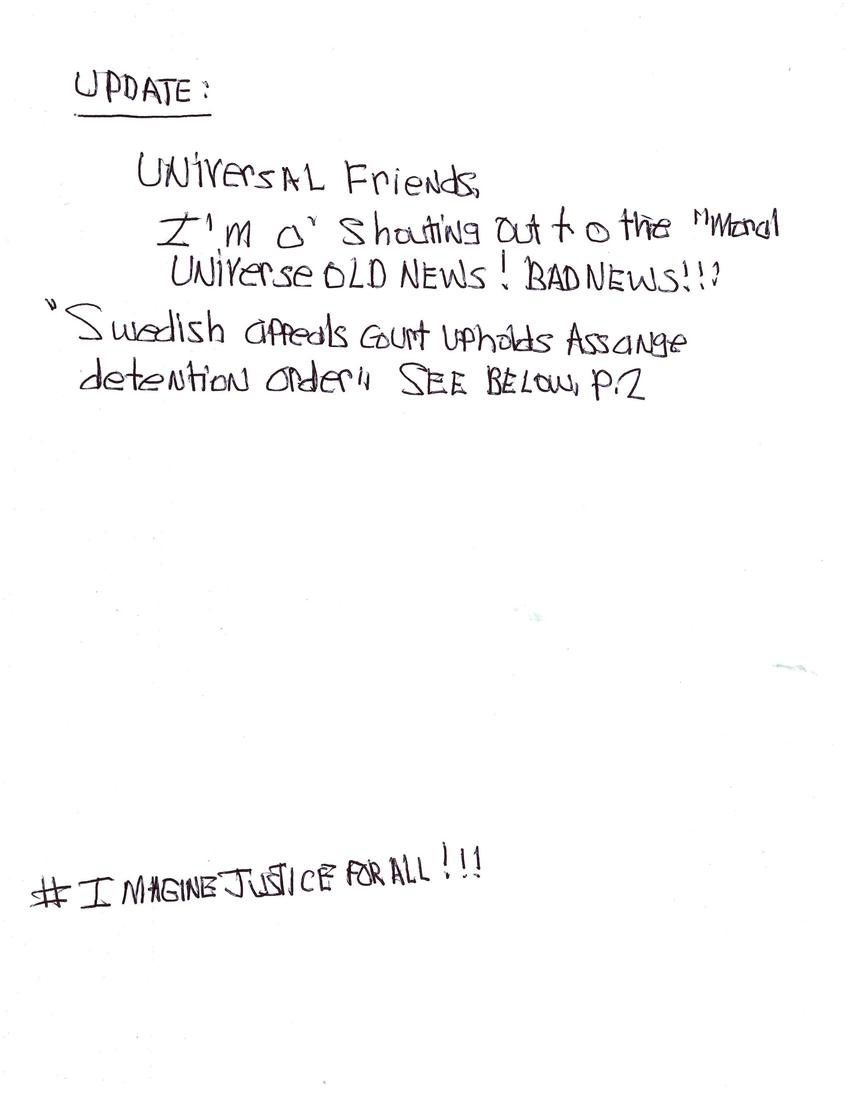 UPDATE:
UNiVersAL Friends,
I'm a' Shouting out to the "Moral
UNiVerse OLD NEWS! BAD NEWS!!!
"Swedish appeals Court upholds Assange
detention order" SEE BELOW, P.2
#IMAGINE JUSTICE FOR ALL!!!